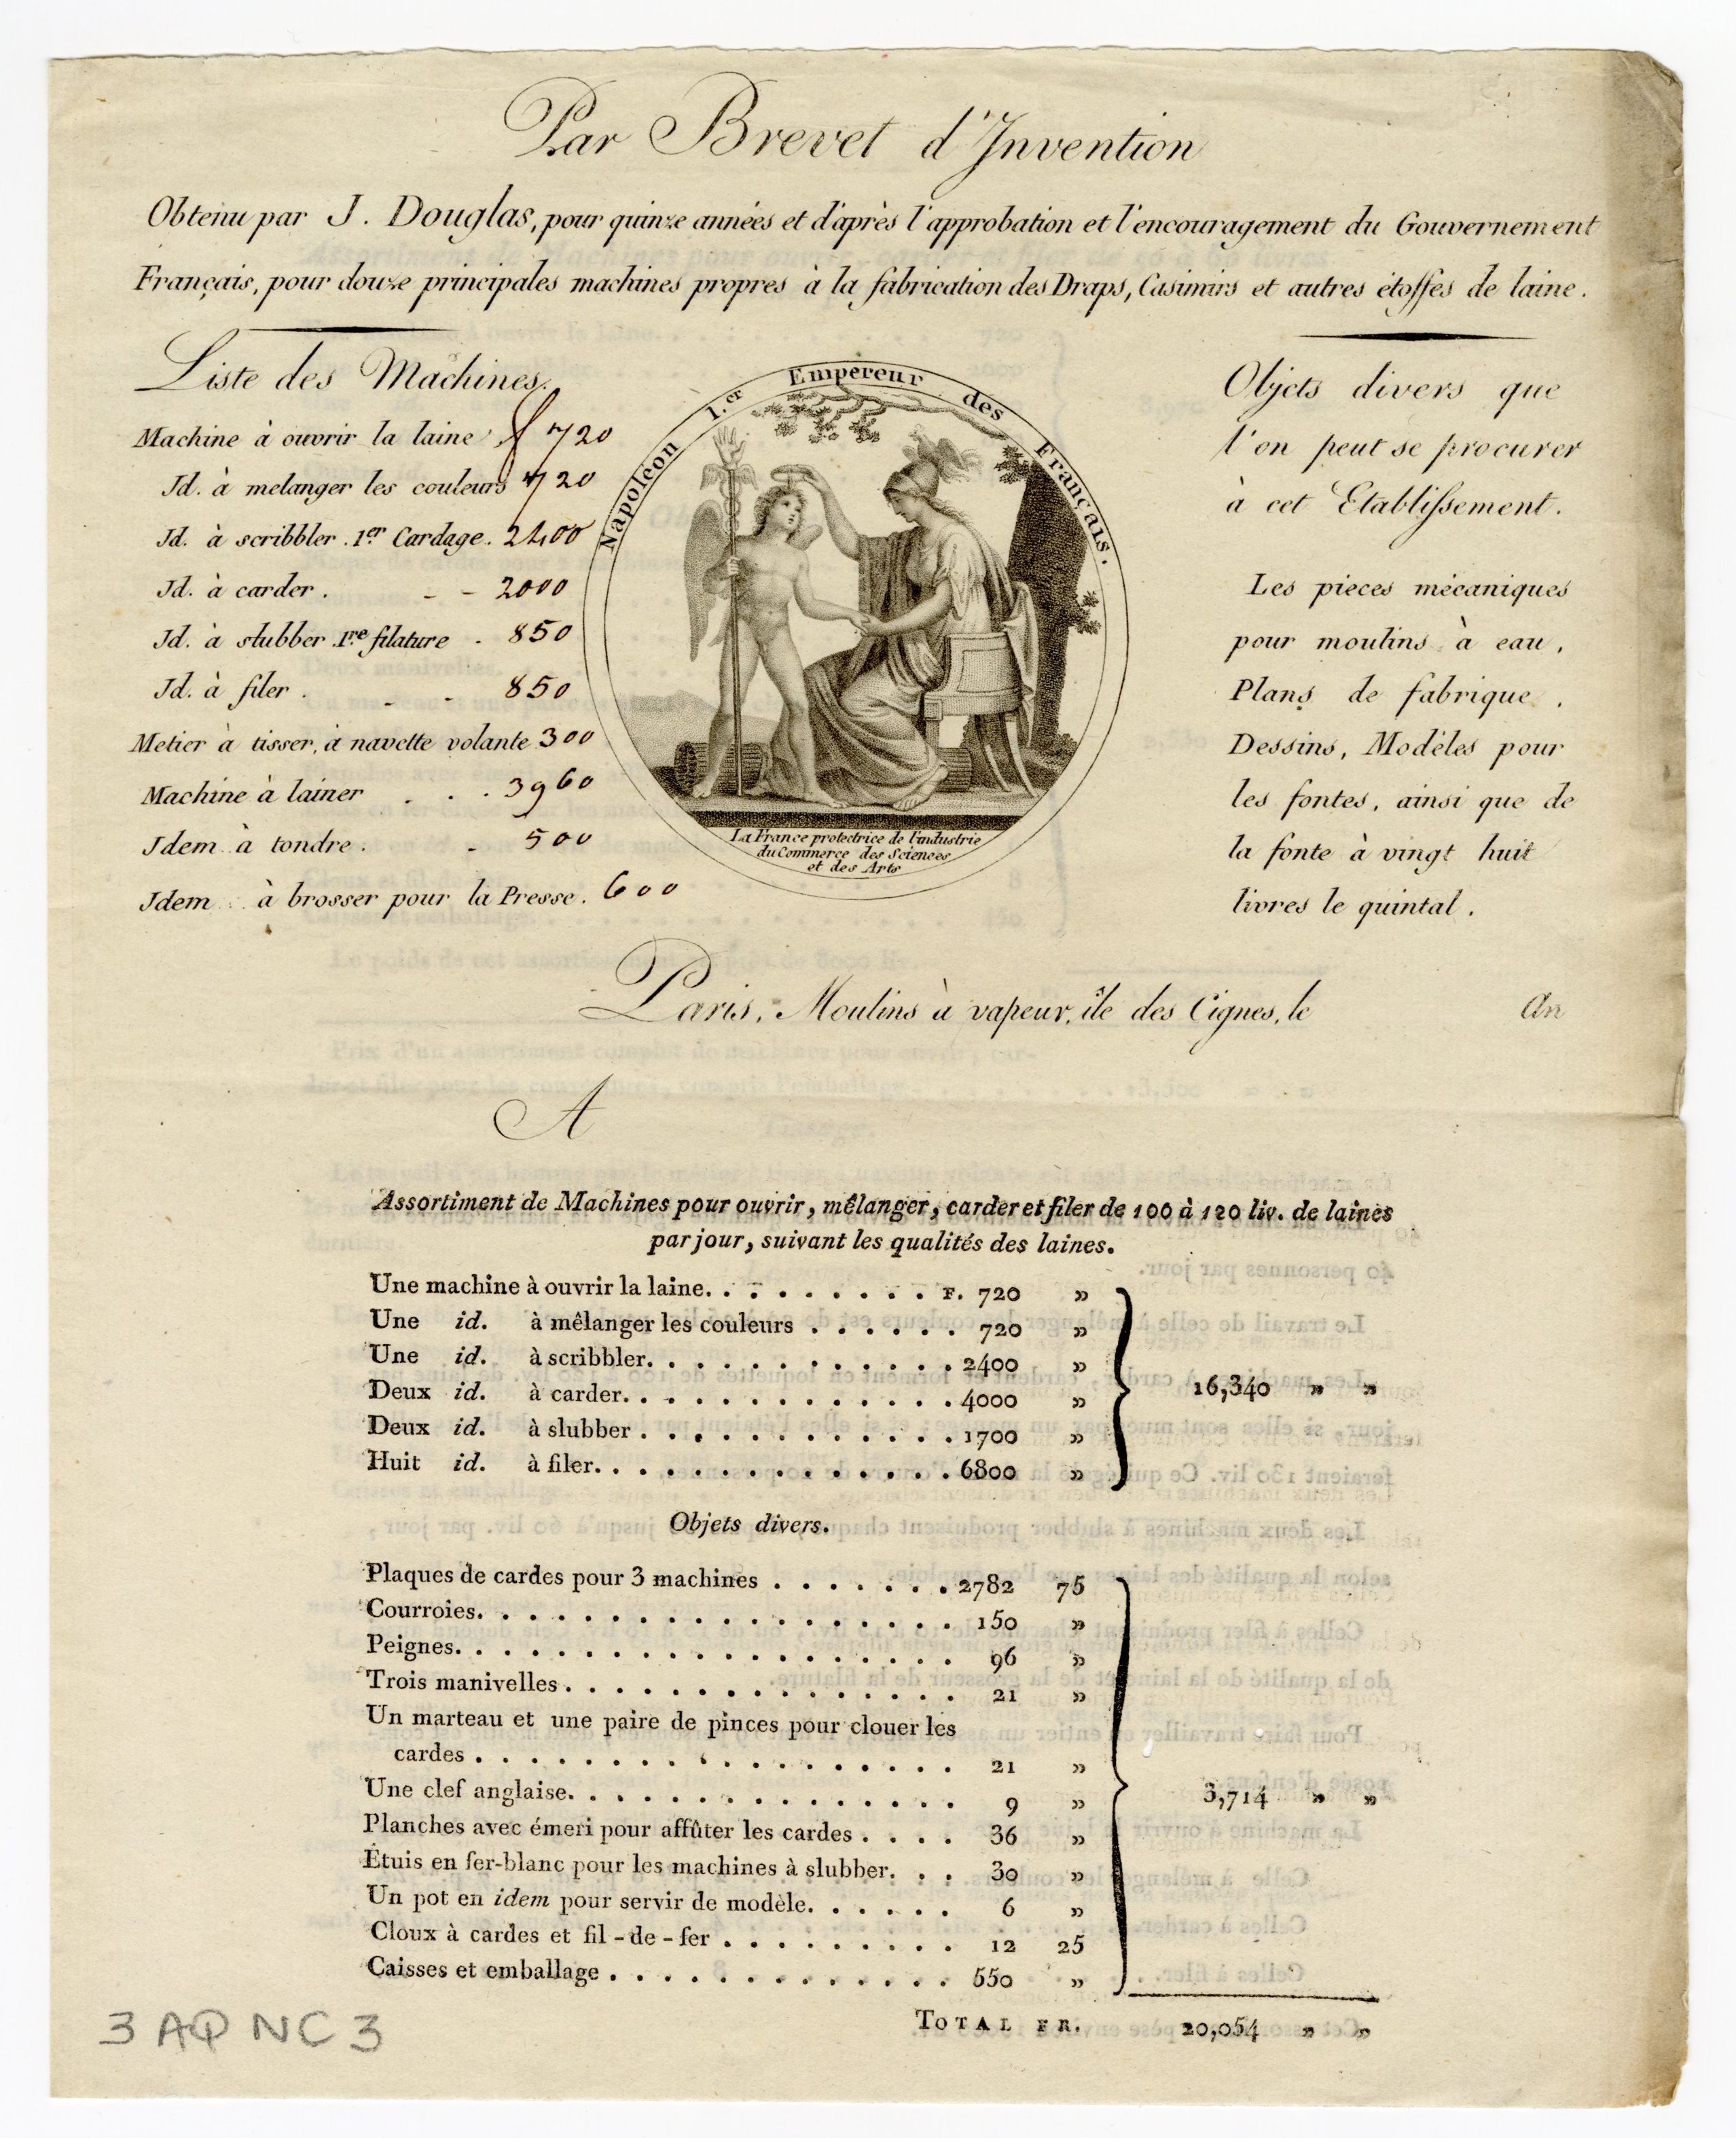 Par Brevet d'Invention
Obtenu par J. Douglas, pour quinze années et d'après l'approbation et l'encouragement du Gouvernement
Français, pour douze principales machines propres à la fabrication des Draps, Casimirs et autres étoffes de laine.
Liste des Machines.
Machine à ouvrir la laine f 720
Jd. à melanger les couleurs 720
Jd. à scribbler. 1er Cardage. 2400
Jd. à carder. - - 2000
Jd. à slubber 1re filature - 850
Jd. à filer . - - 850
Metier à tisser, à navette volante 300
Machine à lainer . . . 3960
Jdem à tondre . - 500
Jdem à brosser pour la Presse. 600
Napoléon 1.er Empereur des Français.
La France protectrice de l'industrie
du Commerce des Sciences
et des Arts
Objets divers que
l'on peut se procurer
à cet Etablissement.
Les pieces mécaniques
pour moulins à eau,
Plans de fabrique,
Dessins, Modèles pour
les fontes, ainsi que de
la fonte à vingt huit
livres le quintal.
Paris, Moulins à vapeur, île des Cignes, le An
A
Assortiment de Machines pour ouvrir, mêlanger, carder et filer de 100 à 120 liv. de laines
par jour, suivant les qualités des laines.
Une machine à ouvrir la laine. . . . . . . . . . F. 720 »
Une id. à mêlanger les couleurs . . . . . . 720 »
Une id. à scribbler. . . . . . . . . . . . 2400 »
Deux id. à carder. . . . . . . . . . . . . 4000 » 16,340 » »
Deux id. à slubber . . . . . . . . . . . . 1700 »
Huit id. à filer. . . . . . . . . . . . . . 6800 »
Objets divers.
Plaques de cardes pour 3 machines . . . . . . . 2782 75
Courroies. . . . . . . . . . . . . . . . . . 150 »
Peignes. . . . . . . . . . . . . . . . . . . 96 »
Trois manivelles . . . . . . . . . . . . . . . 21 »
Un marteau et une paire de pinces pour clouer les
cardes . . . . . . . . . . . . . . . . . . 21 »
Une clef anglaise. . . . . . . . . . . . . . . 9 » 3,714 » »
Planches avec émeri pour affûter les cardes . . . . 36 »
Étuis en fer-blanc pour les machines à slubber. . . 30 »
Un pot en idem pour servir de modèle. . . . . . 6 »
Cloux à cardes et fil-de-fer . . . . . . . . . 12 25
Caisses et emballage . . . . . . . . . . . . . 550 »
TOTAL FR. 20,054 » »
3 AQ NC 3